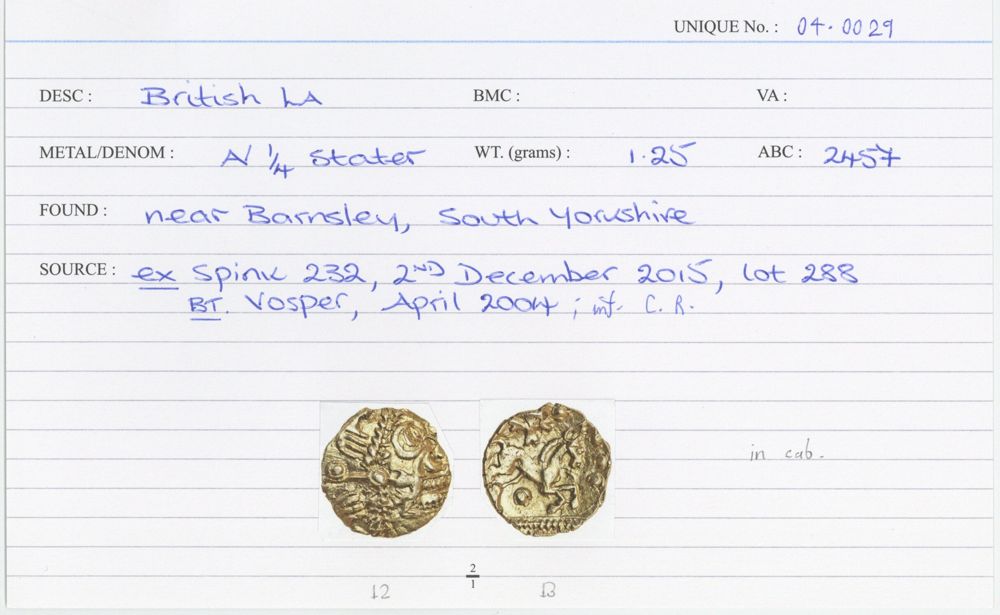 UNIQUE No. : 04.0029
DESC : British LA BMC : VA :
METAL/DENOM : A/ 1/4 Stater WT. (grams) : 1.25 ABC : 2457
FOUND : near Barnsley, South Yorkshire
SOURCE : ex Spink 232, 2ND December 2015, lot 288
BT. Vosper, April 2004 ; inf. C. R.
in cab.
2
1
12 13